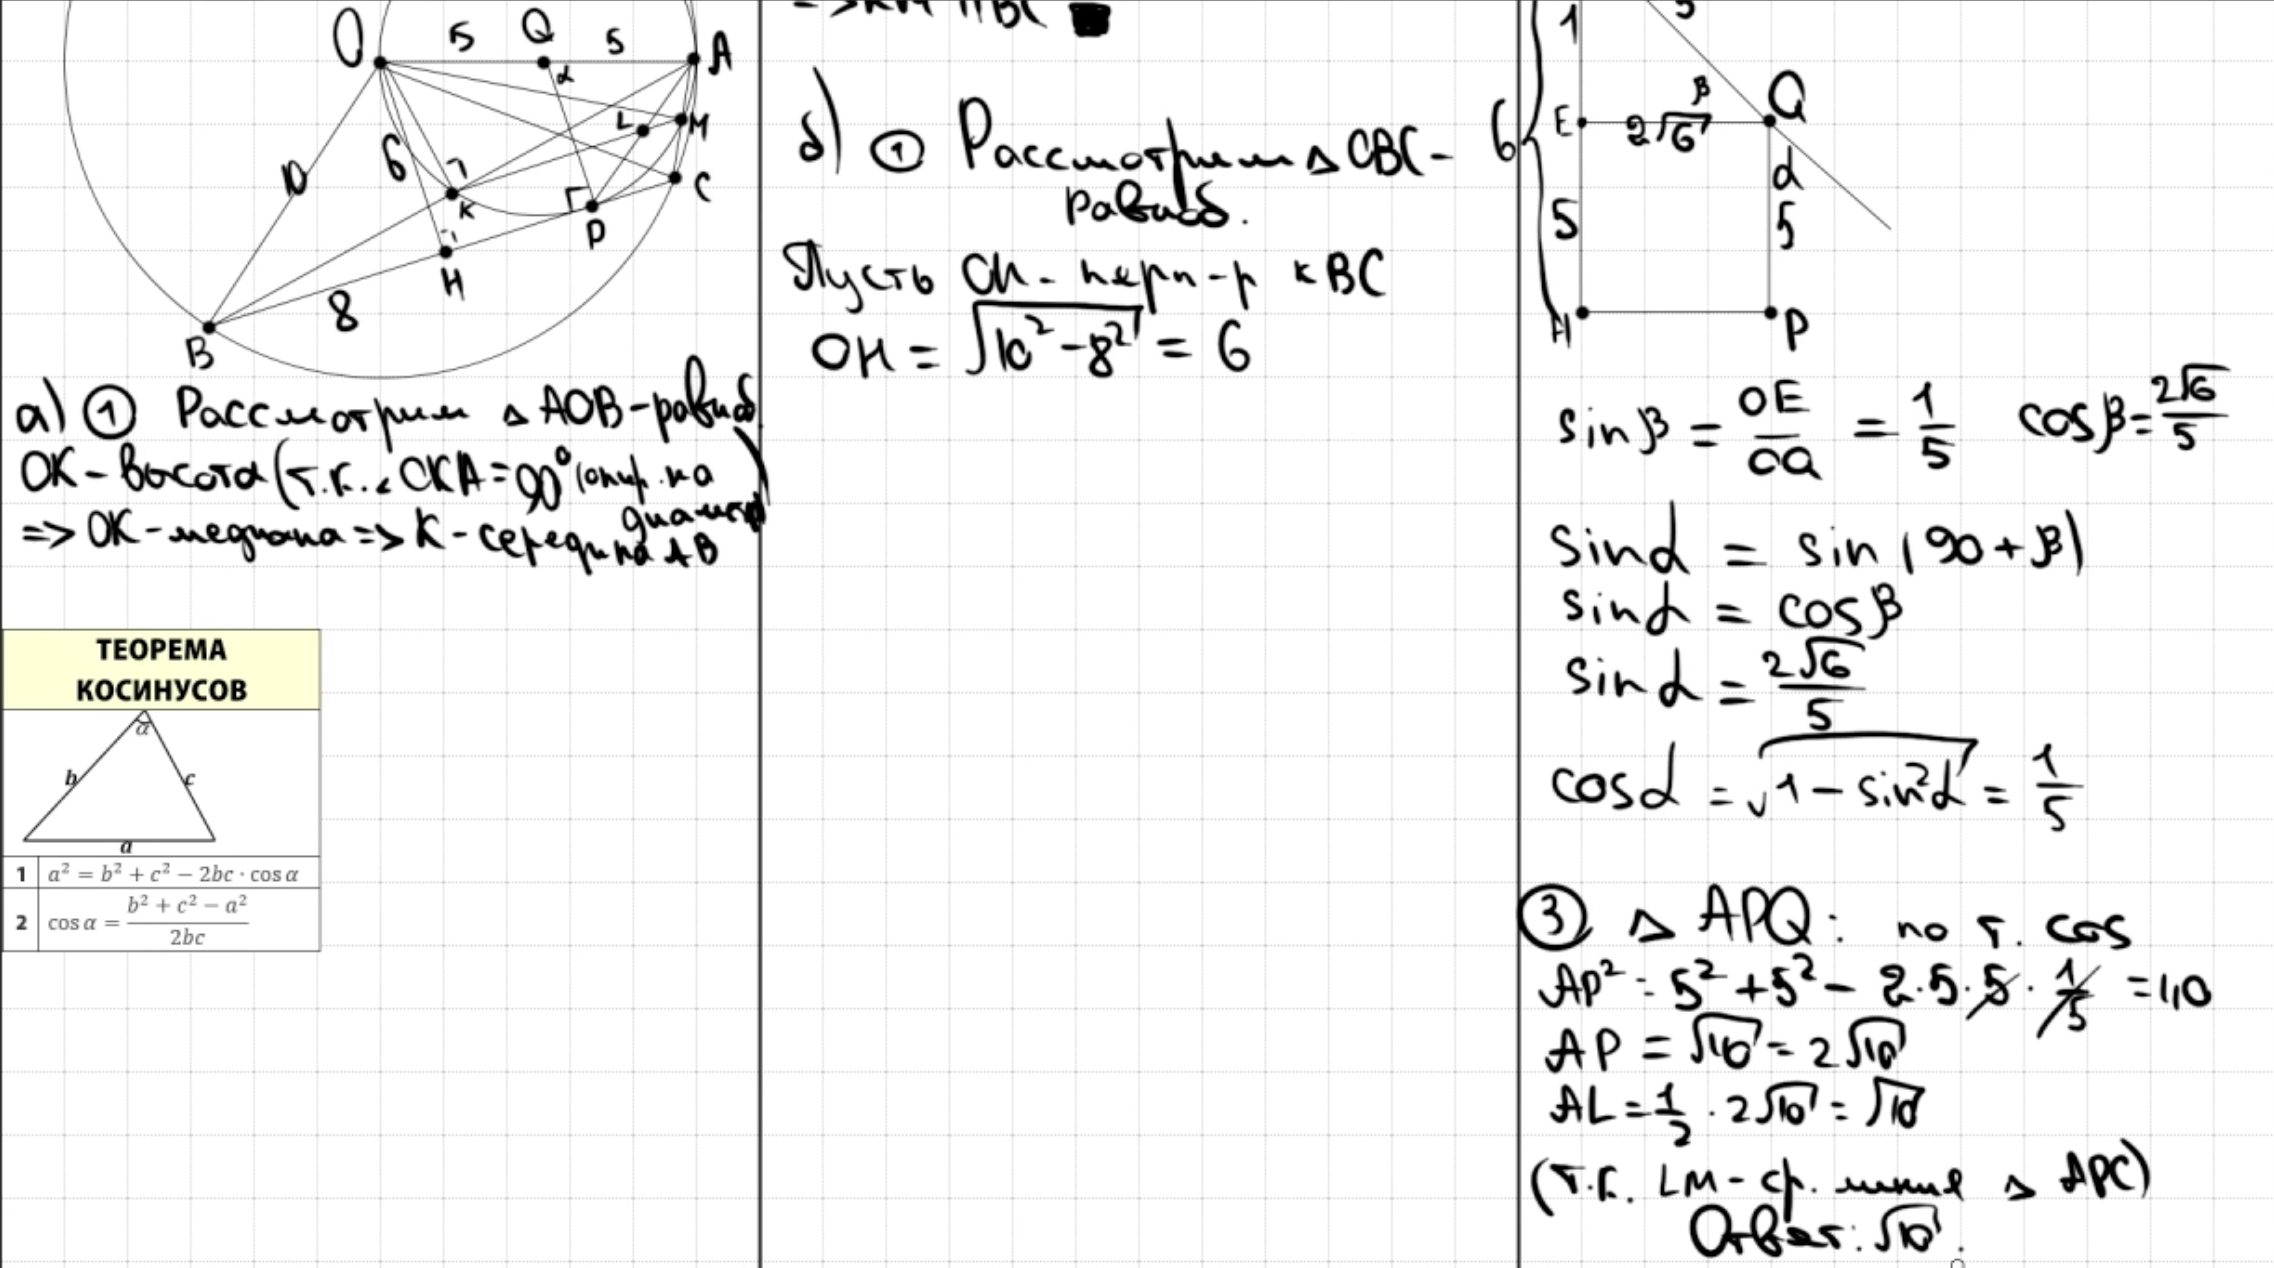 O 5 Q 5 A
α
L M
6 K C
10
P
H
8
B
а) ① Рассмотрим △ AOB - равноб.
OK - высота (т.к. ∠ OKA = 90° (опир. на диаметр)
=> OK - медиана => K - середина AB
ТЕОРЕМА
КОСИНУСОВ
α
b c
a
1 a² = b² + c² − 2bc · cos α
2 cos α = (b² + c² − a²) / 2bc
=> KM || BC ■
б) ① Рассмотрим △ OBC -
равноб.
Пусть OH - перп-р к BC
OH = √(10² - 8²) = 6
1 5
β Q
6 E 2√6
α
5 5
H P
sin β = OE/OQ = 1/5 cos β = 2√6/5
sin α = sin (90 + β)
sin α = cos β
sin α = 2√6/5
cos α = √(1 - sin² α) = 1/5
③ △ APQ: по т. cos
AP² = 5² + 5² - 2·5·5·1/5 = 40
AP = √40 = 2√10
AL = 1/2 · 2√10 = √10
(т.к. LM - ср. линия △ APC)
Ответ: √10.